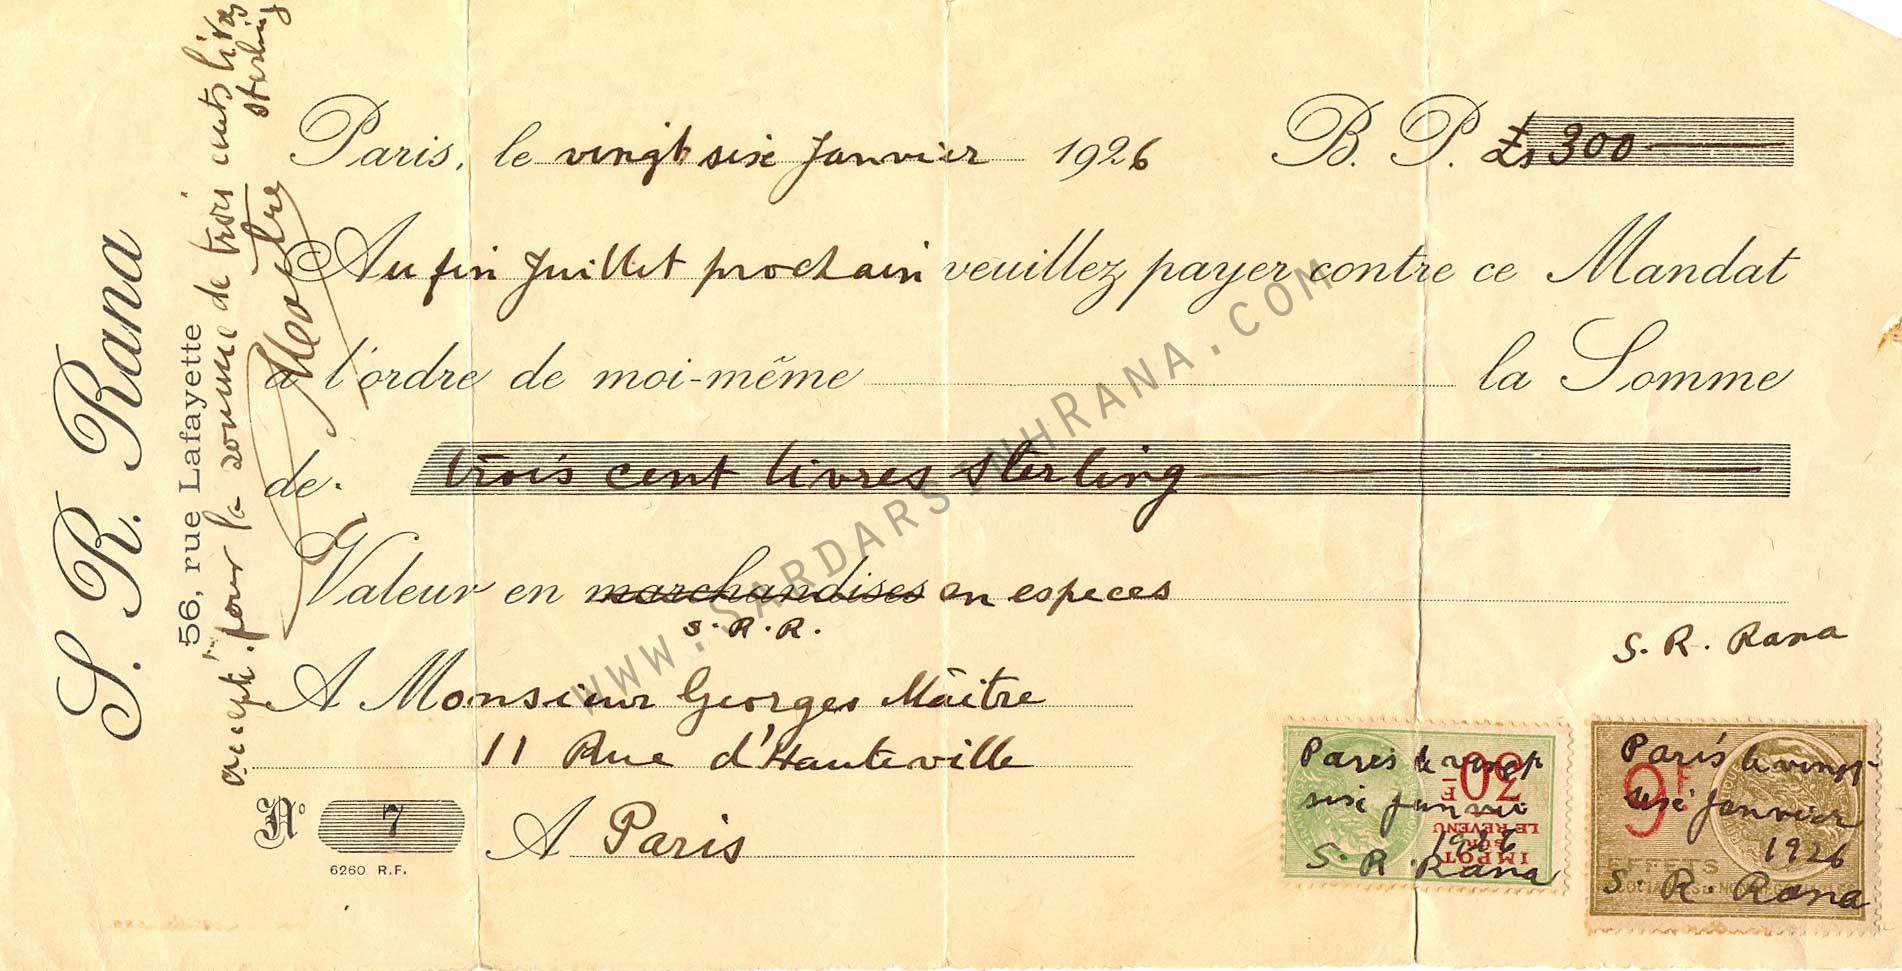 S. R. Rana
56, rue Lafayette
accepté pour la somme de trois cents livres
sterling
Maître
Paris, le vingt six Janvier 1926 B. P. £s 300
Au fin Juillet prochain veuillez payer contre ce Mandat
à l'ordre de moi-même la Somme
de trois cent livres sterling
Valeur en marchandises en especes
S.R.R.
S. R. Rana
A Monsieur Georges Maître
11 Rue d'Hauteville
A Paris
No 7
6260 R.F.
Paris le vingt
six Janvier
1926
S. R. Rana
30 F
IMPOT
SUR
LE REVENU
Paris le vingt
six Janvier
1926
S. R. Rana
9F
EFFETS
WWW.SARDARSINHRANA.COM